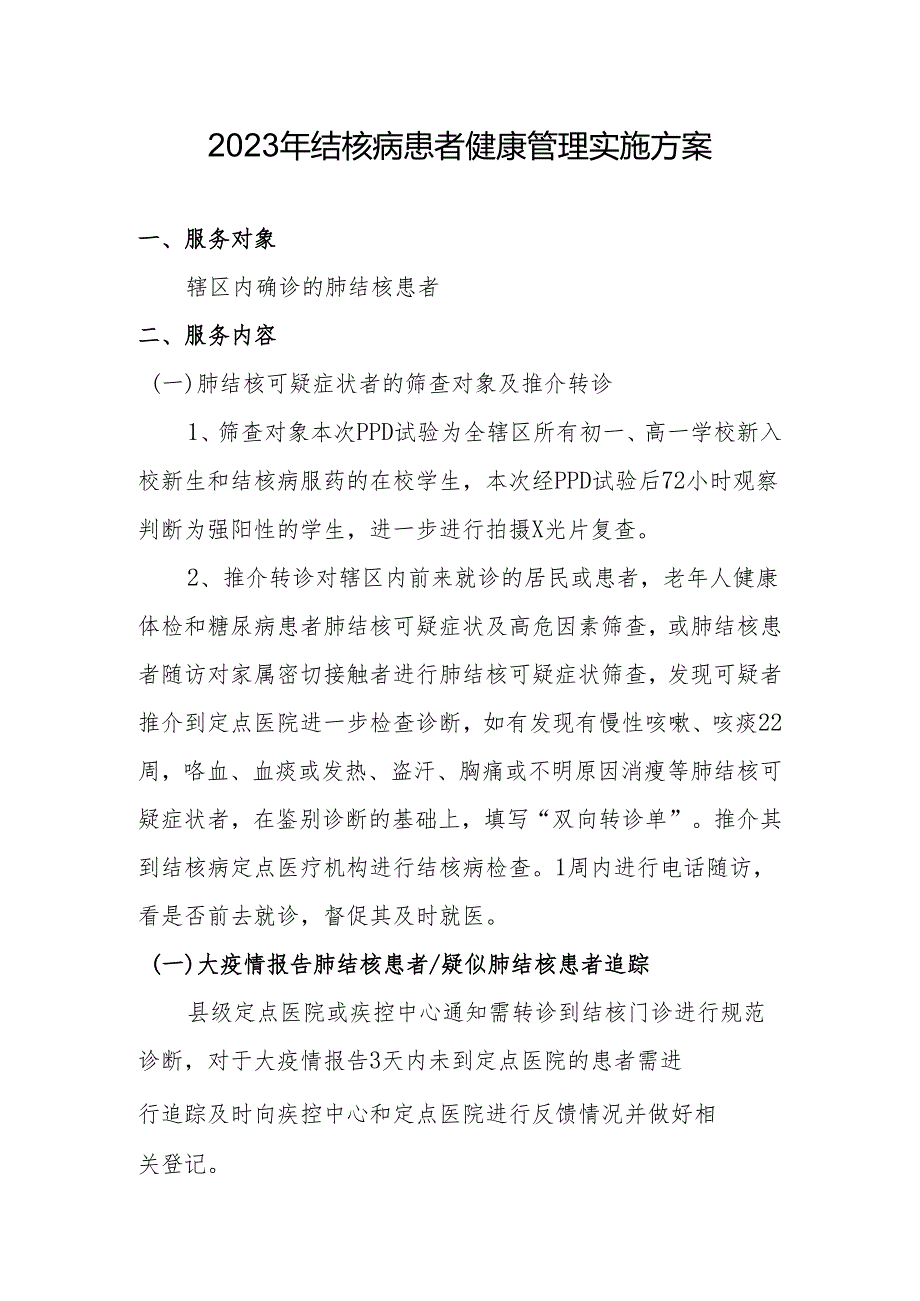 2023年结核病患者健康管理实施方案
一、服务对象
辖区内确诊的肺结核患者
二、服务内容
(一)肺结核可疑症状者的筛查对象及推介转诊
1、筛查对象本次PPD试验为全辖区所有初一、高一学校新入
校新生和结核病服药的在校学生，本次经PPD试验后72小时观察
判断为强阳性的学生，进一步进行拍摄X光片复查。
2、推介转诊对辖区内前来就诊的居民或患者，老年人健康
体检和糖尿病患者肺结核可疑症状及高危因素筛查，或肺结核患
者随访对家属密切接触者进行肺结核可疑症状筛查，发现可疑者
推介到定点医院进一步检查诊断，如有发现有慢性咳嗽、咳痰22
周，咯血、血痰或发热、盗汗、胸痛或不明原因消瘦等肺结核可
疑症状者，在鉴别诊断的基础上，填写“双向转诊单”。推介其
到结核病定点医疗机构进行结核病检查。1周内进行电话随访，
看是否前去就诊，督促其及时就医。
(一)大疫情报告肺结核患者/疑似肺结核患者追踪
县级定点医院或疾控中心通知需转诊到结核门诊进行规范
诊断，对于大疫情报告3天内未到定点医院的患者需进
行追踪及时向疾控中心和定点医院进行反馈情况并做好相
关登记。